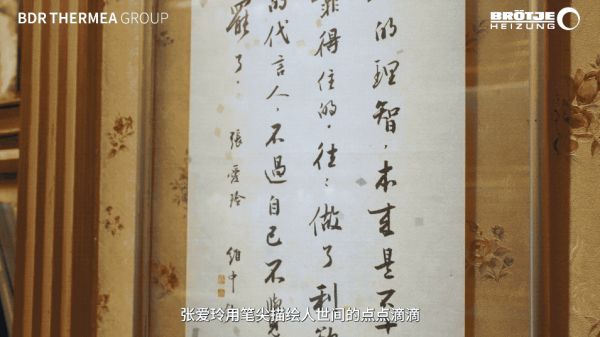 BDR THERMEA GROUP
BRÖTJE
HEIZUNG
的理智，本來是不
靠得住的，往：做了利
的代言人，不過自己不覺
罷了。
張愛玲
张爱玲用笔尖描绘人世间的点点滴滴